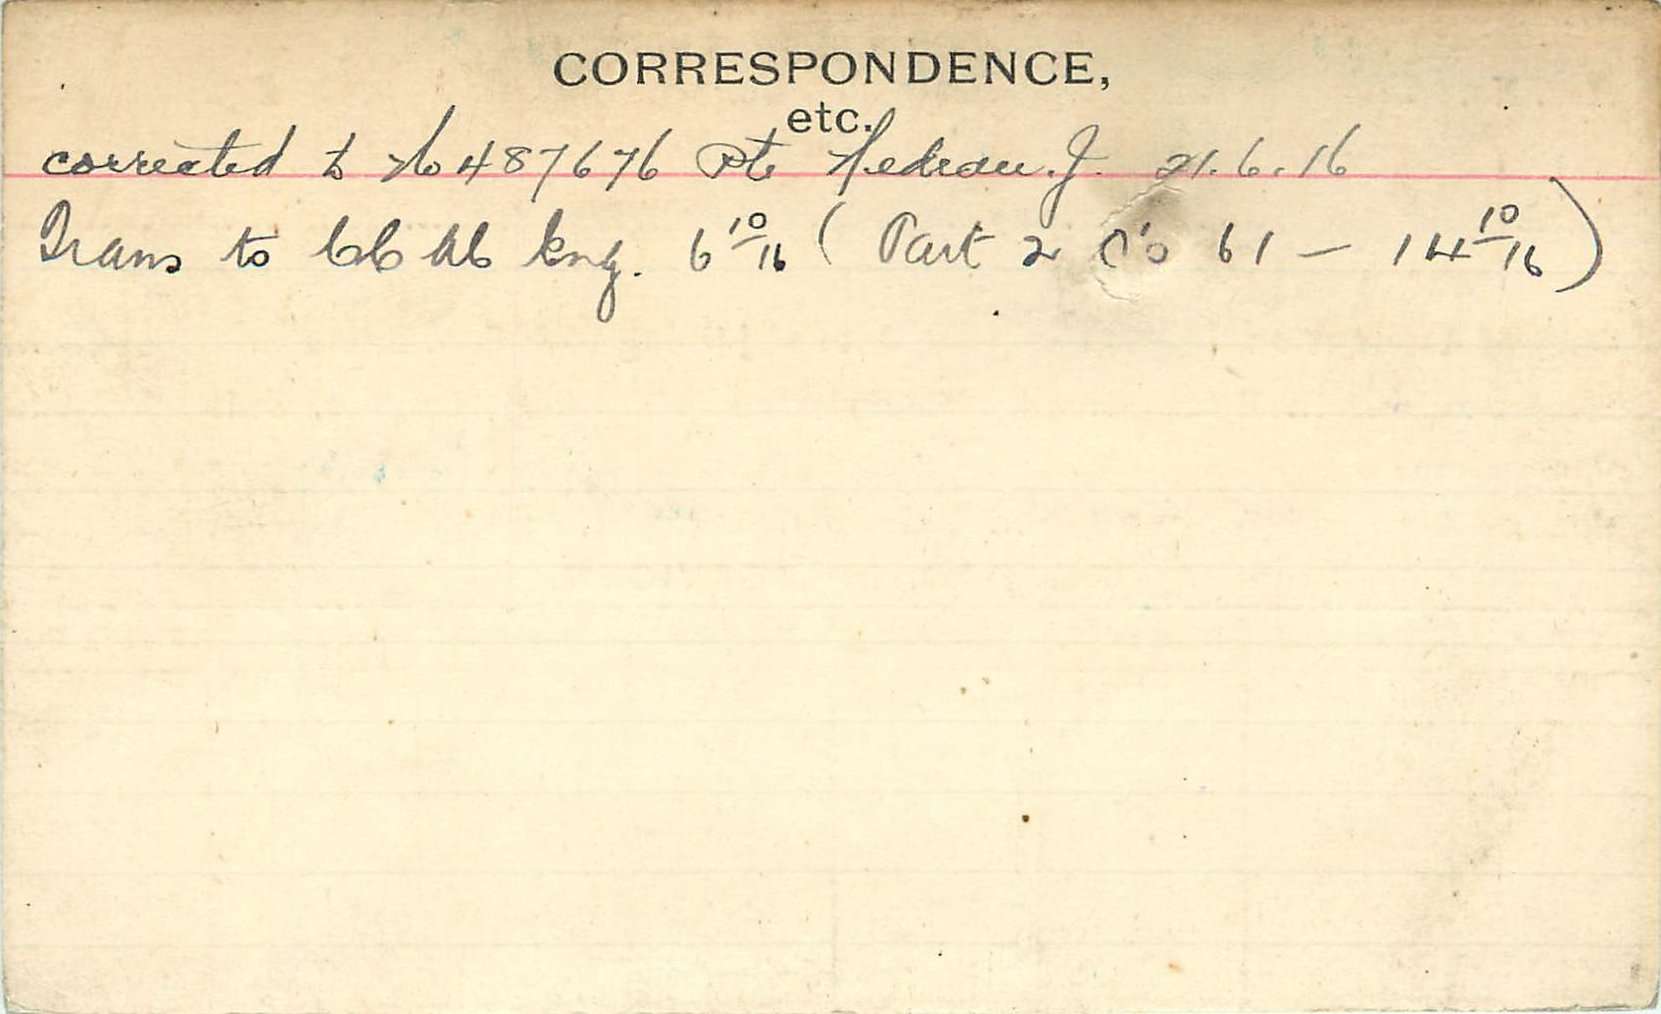 CORRESPONDENCE,
etc.
corrected to No 487676 Pte J. 21.6.16
Trans to CCAC Eng. 6 10/16 (Part 2 O's 61 - 14 10/16)